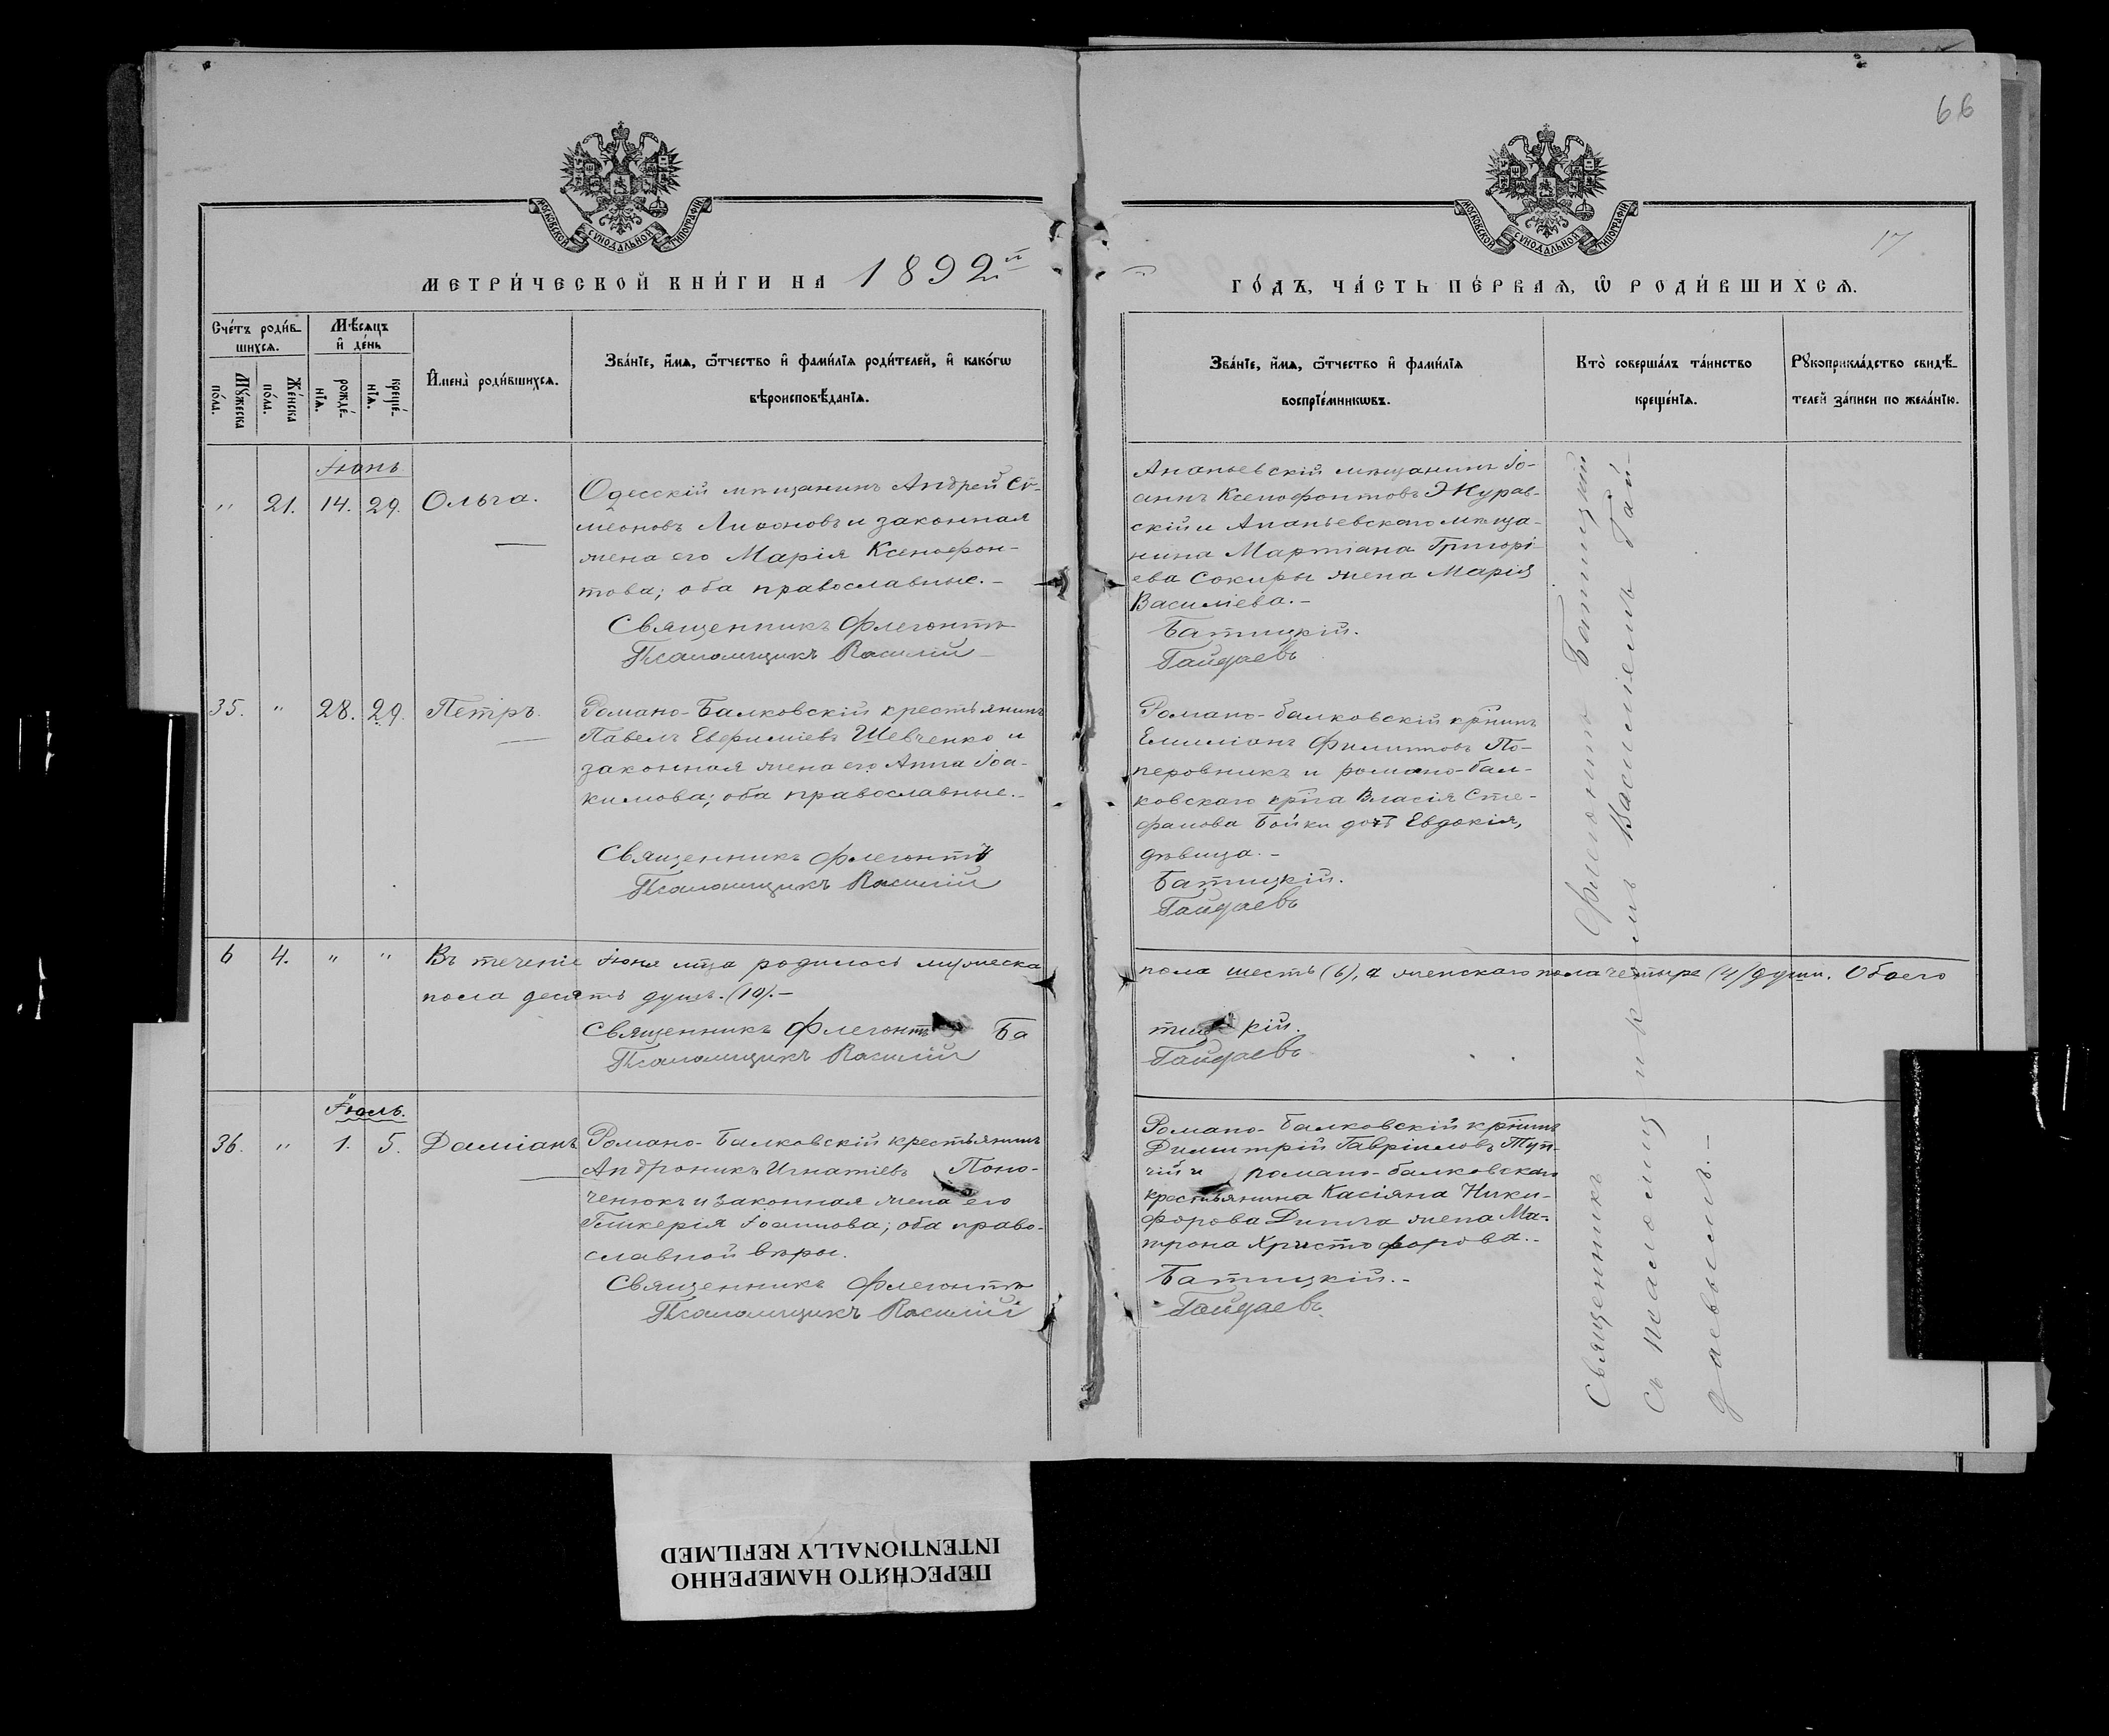 66
МОСКОВСКОЙ СѴНОДАЛЬНОЙ ТИПОГРАФІИ
МОСКОВСКОЙ СѴНОДАЛЬНОЙ ТИПОГРАФІИ
17
МЕТРИ́ЧЕСКОЙ КНИ́ГИ НА 1892й
ГО́ДЪ, ЧА́СТЬ ПЕ́РВАѦ, Ѡ РОДИ́ВШИХСѦ.
Сче́тъ роди́в-
шихсѧ.
Мꙋ́жеска
по́ла.
Же́нска
по́ла.
Мѣ́сѧцъ
и҆ де́нь
рожде́-
нїѧ.
креще́-
нїѧ.
И҆мена̀ роди́вшихсѧ.
Зва́нїе, и҆́мѧ, ѻ҆́тчество и҆ фами́лїѧ роди́телей, и҆ како́гѡ
вѣроисповѣ́данїѧ.
Зва́нїе, и҆́мѧ, ѻ҆́тчество и҆ фами́лїѧ
воспрїе́мникѡвъ.
Кто̀ соверша́лъ та́инство
креще́нїѧ.
Рꙋкоприкла́дство свидѣ́-
телей за́писи по жела́нїю.
Іюнь
" 21. 14. 29. Ольга.
Одесскій мѣщанинъ Андрей Си-
меоновъ Лисоновъ и законная
жена его Марія Ксенофон-
това; оба православные.-
Священникъ Флегонтъ
Псаломщикъ Василій
Ананьевскій мѣщанинъ Іо-
аннъ Ксенофонтовъ Журав-
скій и Ананьевскаго мѣща-
нина Мартіана Григорі-
ева Сокиры жена Марія
Василіева.-
Батицкій.
Гайдаевъ
35. " 28. 29. Петръ.
Романо-Балковскій крестьянинъ
Павелъ Евфиміевъ Шевченко и
законная жена его Анна Іоа-
кимова; оба православные.-
Священникъ Флегонтъ
Псаломщикъ Василій
Романо-балковскій кр̃нинъ
Емиліанъ Филиповъ По-
перовникъ и романо-бал-
ковскаго кр̃на Власія Сте-
фанова Бойки дочь Евдокія,
дѣвица.-
Батицкій.
Гайдаевъ
6 4. " " Въ теченіе Іюня мѣца родилось мужеска пола шесть (6), а женскаго пола четыре (4) души. Обоего
пола десять душъ. (10).-
Священникъ Флегонтъ Ба тицкій.
Псаломщикъ Василій Гайдаевъ
Іюль.
36. " 1. 5. Даміанъ
Романо-Балковскій крестьянинъ
Андроникъ Игнатіевъ Поно-
ченюкъ и законная жена его
Гликерія Іоаннова; оба право-
славной вѣры.
Священникъ Флегонтъ
Псаломщикъ Василій
Романо-Балковскій кр̃нинъ
Димитрій Гавріиловъ Туп-
чій и романо-балковскаго
крестьянина Касіяна Ники-
форова Дитча жена Ма-
трона Христофорова.-
Батицкій.-
Гайдаевъ.
Священникъ Флегонтъ Батицкій
съ псаломщикомъ Василіемъ Гай-
даевымъ.-
ПЕРЕСНЯТО НАМЕРЕННО
INTENTIONALLY REFILMED